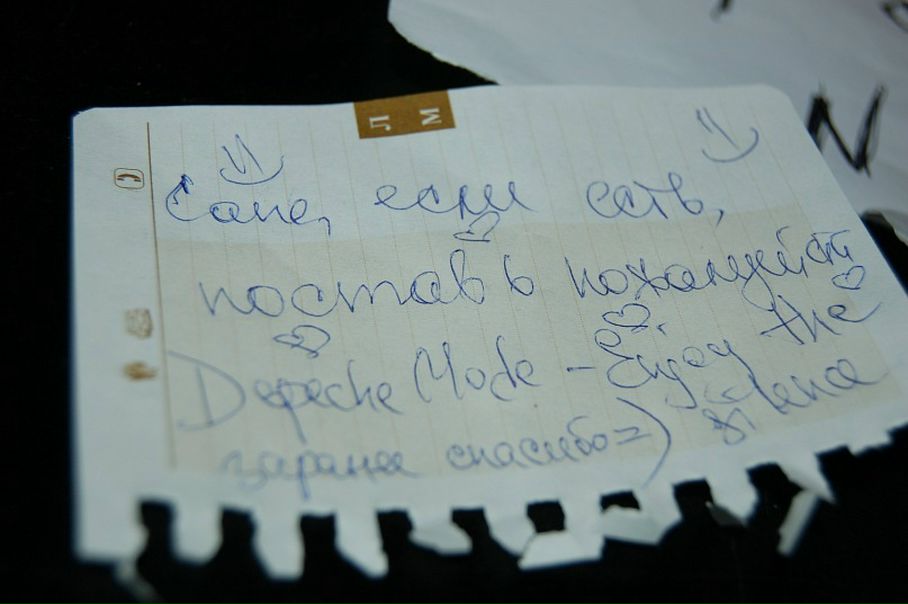 Л М
N
Сане, если есть,
поставь пожалуйста
Depeche Mode – Enjoy the
silence
заранее спасибо =)